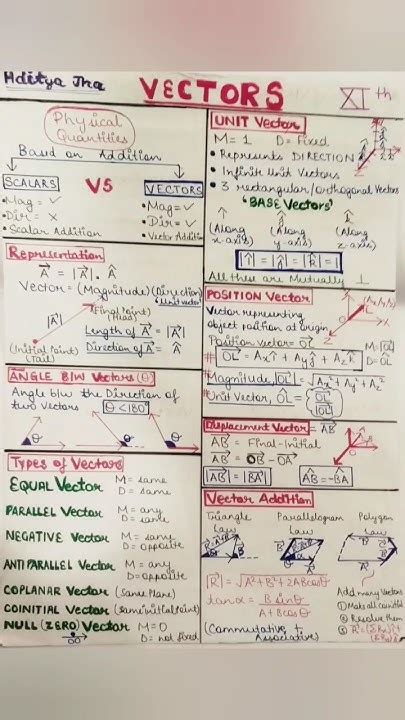 Aditya Jha
VECTORS
XIth
Physical
Quantities
Based on Addition
SCALARS
VS
VECTORS
• Mag = ✓
• Dir = ×
• Scalar Addition
• Mag = ✓
• Dir = ✓
• Vector Addition
Representation
A = |A| . Â
Vector = (Magnitude) (Direction)
Unit Vector
|A|
(Final Point)
(Head)
(Initial Point)
(Tail)
Length of A = |A|
Direction of A = Â
ANGLE B/W Vectors (θ)
Angle b/w the Direction of
two Vectors
θ < 180°
θ
θ
θ
Types of Vectors
EQUAL Vector M = same
D = same
PARALLEL Vector M = any
D = same
NEGATIVE Vector M = same
D = opposite
ANTIPARALLEL Vector M = any
D = opposite
COPLANAR Vector (same Plane)
COINITIAL Vector (same initial point)
NULL (ZERO) Vector M = 0
D = not fixed
UNIT Vector
M = 1 D = Fixed
• Represents DIRECTION
• Infinite Unit Vectors
• 3 rectangular/Orthogonal Vectors
"BASE Vectors"
î ĵ k̂
(Along x-axis) (Along y-axis) (Along z-axis)
|î| = |ĵ| = |k̂| = 1
All these are Mutually ⊥
POSITION Vector
Vector representing
object position at origin
Position vector = OL
M = |OL|
D = ÔL
OL = Axî + Ayĵ + Azk̂
Magnitude, |OL| = √Ax² + Ay² + Az²
Unit Vector, ÔL = OL / |OL|
Displacement Vector = AB
AB = Final - Initial
AB = OB - OA
|AB| = |BA|
AB = -BA
Vector Addition
Triangle Law
Parallelogram Law
Polygon Law
|R| = √A² + B² + 2ABcosθ
tanα = B sinθ / A + B cosθ
(Commutative +
Associative)
Add many Vectors
② Resolve them